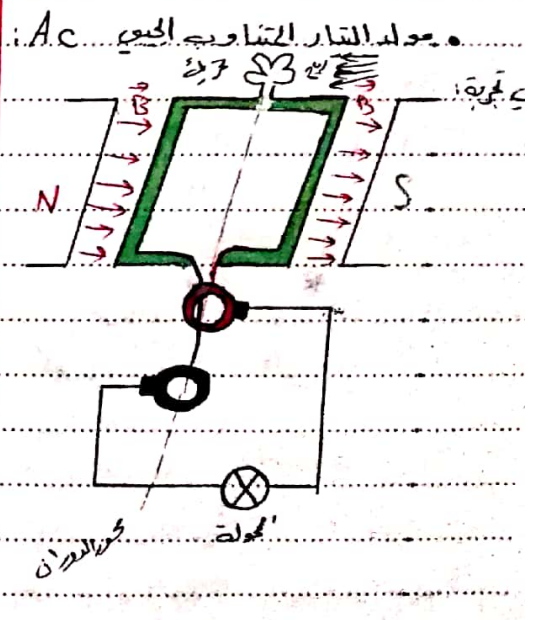 • مولد التيار المتناوب الجيبي AC :
تجربة:
B B
N S
الحمولة
محور الدوران